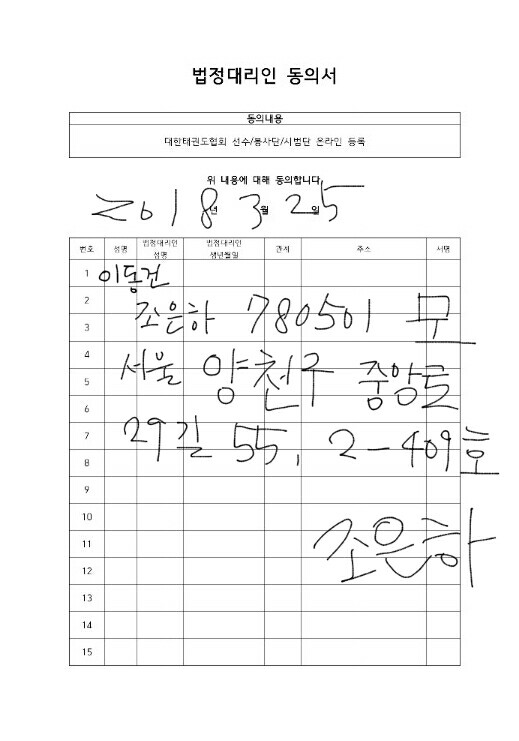 법정대리인 동의서
동의내용
대한태권도협회 선수/봉사단/시범단 온라인 등록
위 내용에 대해 동의합니다
2018년 3월 25일
번호 성명 법정대리인 성명 법정대리인 생년월일 관계 주소 서명
1 이동건
2
3 조은하 780501 모
4
5 서울 양천구 중앙로
6
7 29길 55, 2-409호
8
9
10
11 조은하
12
13
14
15